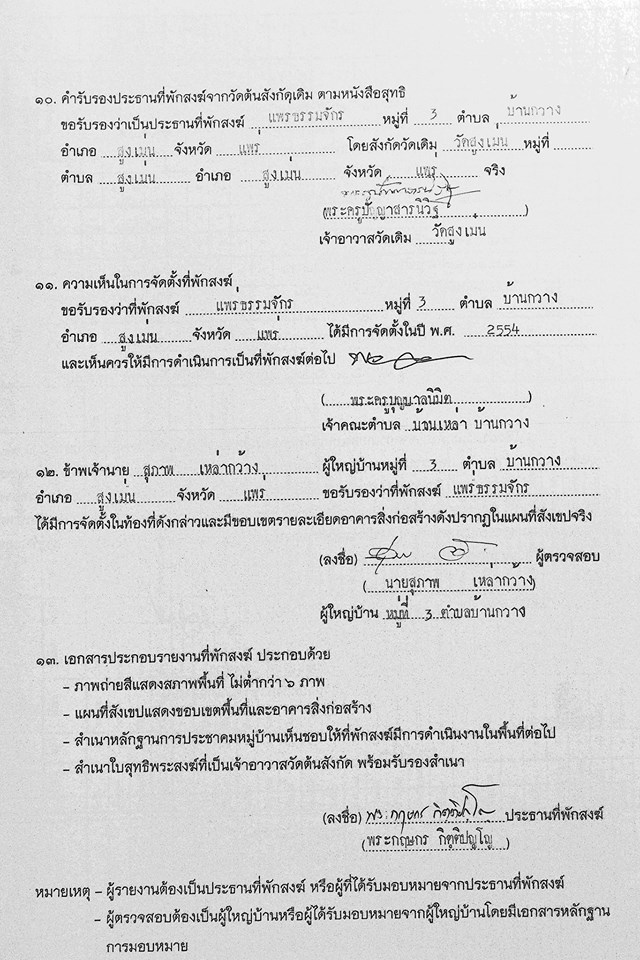 ๑๐. คำรับรองประธานที่พักสงฆ์จากวัดต้นสังกัดเดิม ตามหนังสือสุทธิ
ขอรับรองว่าเป็นประธานที่พักสงฆ์ แพร่ธรรมจักร หมู่ที่ 3 ตำบล บ้านกวาง
อำเภอ สูงเม่น จังหวัด แพร่ โดยสังกัดวัดเดิม วัดสูงเม่น หมู่ที่
ตำบล สูงเม่น อำเภอ สูงเม่น จังหวัด แพร่ จริง
(พระครูปัญญาสารนิวิฐ)
เจ้าอาวาสวัดเดิม วัดสูงเม่น
๑๑. ความเห็นในการจัดตั้งที่พักสงฆ์
ขอรับรองว่าที่พักสงฆ์ แพร่ธรรมจักร หมู่ที่ 3 ตำบล บ้านกวาง
อำเภอ สูงเม่น จังหวัด แพร่ ได้มีการจัดตั้งในปี พ.ศ. 2554
และเห็นควรให้มีการดำเนินการเป็นที่พักสงฆ์ต่อไป
(พระครูบุญบาลนิมิต)
เจ้าคณะตำบล บ้านเหล่า บ้านกวาง
๑๒. ข้าพเจ้านาย สุภาพ เหล่ากว้าง ผู้ใหญ่บ้านหมู่ที่ 3 ตำบล บ้านกวาง
อำเภอ สูงเม่น จังหวัด แพร่ ขอรับรองว่าที่พักสงฆ์ แพร่ธรรมจักร
ได้มีการจัดตั้งในท้องที่ดังกล่าวและมีขอบเขตรายละเอียดอาคารสิ่งก่อสร้างดังปรากฏในแผนที่สังเขปจริง
(ลงชื่อ) ผู้ตรวจสอบ
(นายสุภาพ เหล่ากว้าง)
ผู้ใหญ่บ้าน หมู่ที่ 3 ตำบลบ้านกวาง
๑๓. เอกสารประกอบรายงานที่พักสงฆ์ ประกอบด้วย
– ภาพถ่ายสีแสดงสภาพพื้นที่ ไม่ต่ำกว่า ๖ ภาพ
– แผนที่สังเขปแสดงขอบเขตพื้นที่และอาคารสิ่งก่อสร้าง
– สำเนาหลักฐานการประชาคมหมู่บ้านเห็นชอบให้ที่พักสงฆ์มีการดำเนินงานในพื้นที่ต่อไป
– สำเนาใบสุทธิพระสงฆ์ที่เป็นเจ้าอาวาสวัดต้นสังกัด พร้อมรับรองสำเนา
(ลงชื่อ) พระกฤษกร กิตฺติปญฺโญ ประธานที่พักสงฆ์
(พระกฤษกร กิตฺติปญฺโญ)
หมายเหตุ – ผู้รายงานต้องเป็นประธานที่พักสงฆ์ หรือผู้ที่ได้รับมอบหมายจากประธานที่พักสงฆ์
– ผู้ตรวจสอบต้องเป็นผู้ใหญ่บ้านหรือผู้ได้รับมอบหมายจากผู้ใหญ่บ้านโดยมีเอกสารหลักฐาน
การมอบหมาย